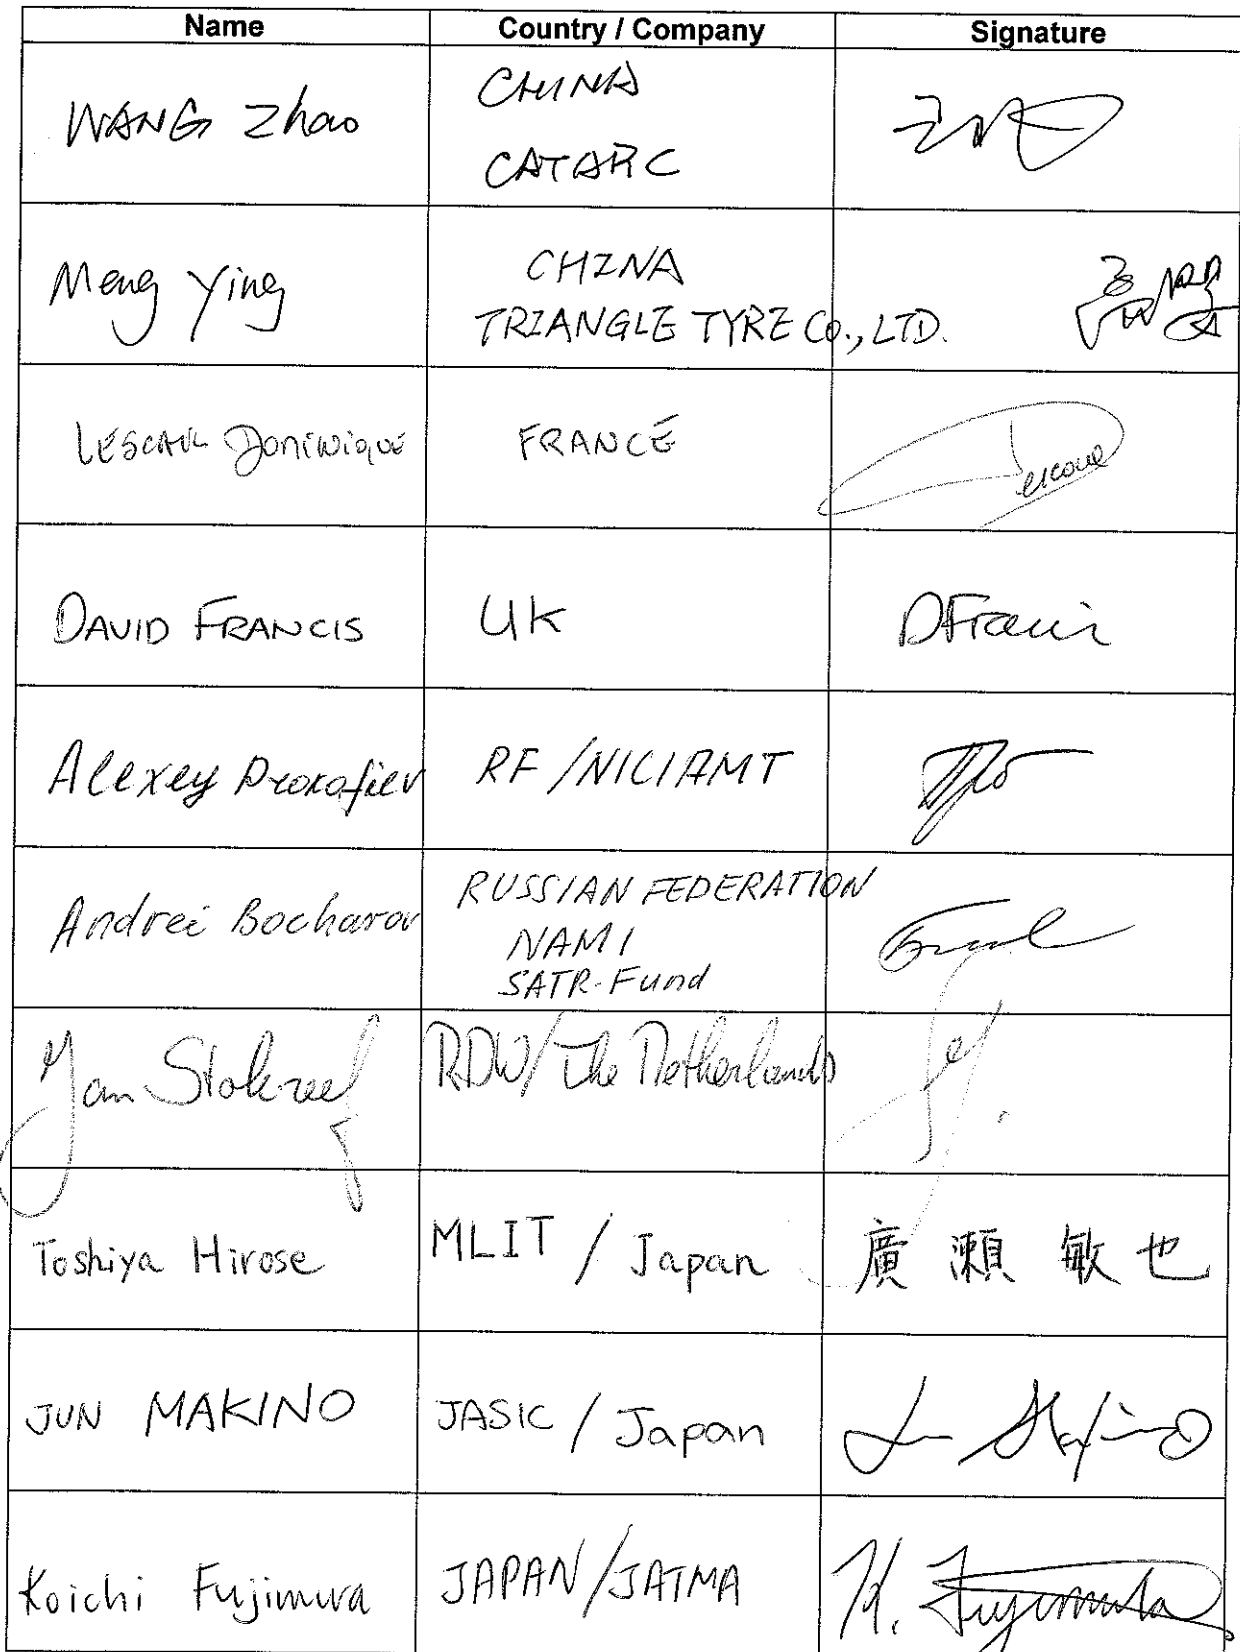 Name Country / Company Signature
WANG Zhao
CHINA
CATARC
Meng Ying
CHINA
TRIANGLE TYRE CO., LTD.
Dominique
FRANCE
DAVID FRANCIS
UK
DFrancis
Alexey Prokofiev
RF / NICIAMT
Andrei Bocharov
RUSSIAN FEDERATION
NAMI
SATR-Fund
Jan Stokreef
RDW/The Netherlands
Toshiya Hirose
MLIT / Japan
廣瀬 敏也
JUN MAKINO
JASIC / Japan
Koichi Fujimura
JAPAN/JATMA
K. Fujimura